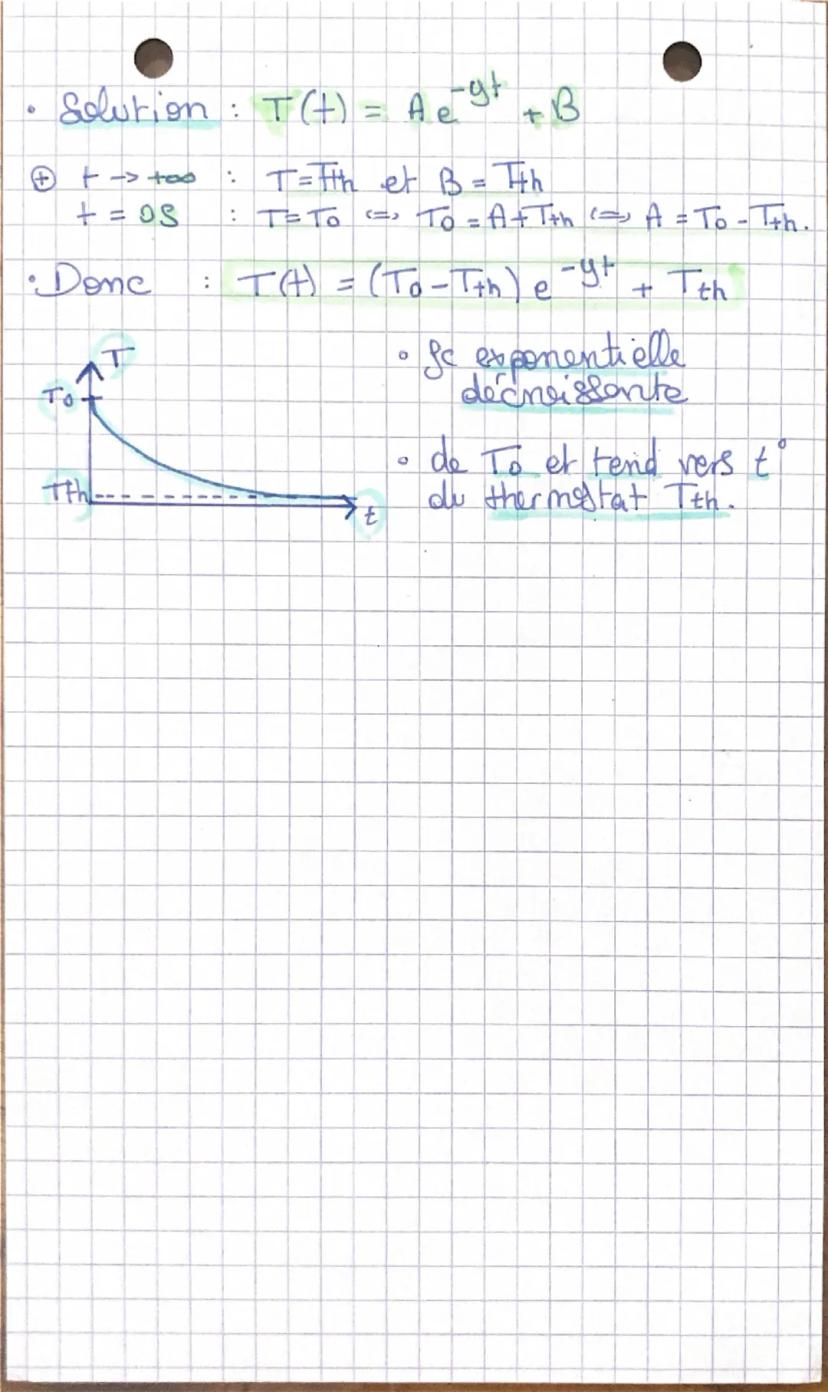 • Solution : T(t) = Ae^-γt + B
⊕ t → +∞ : T = Tth et B = Tth
t = 0s : T = T0 <=> T0 = A + Tth <=> A = T0 - Tth.
• Donc : T(t) = (T0 - Tth) e^-γt + Tth
T
T0
Tth
t
• fc exponentielle
décroissante
• de T0 et tend vers t°
du thermostat Tth.